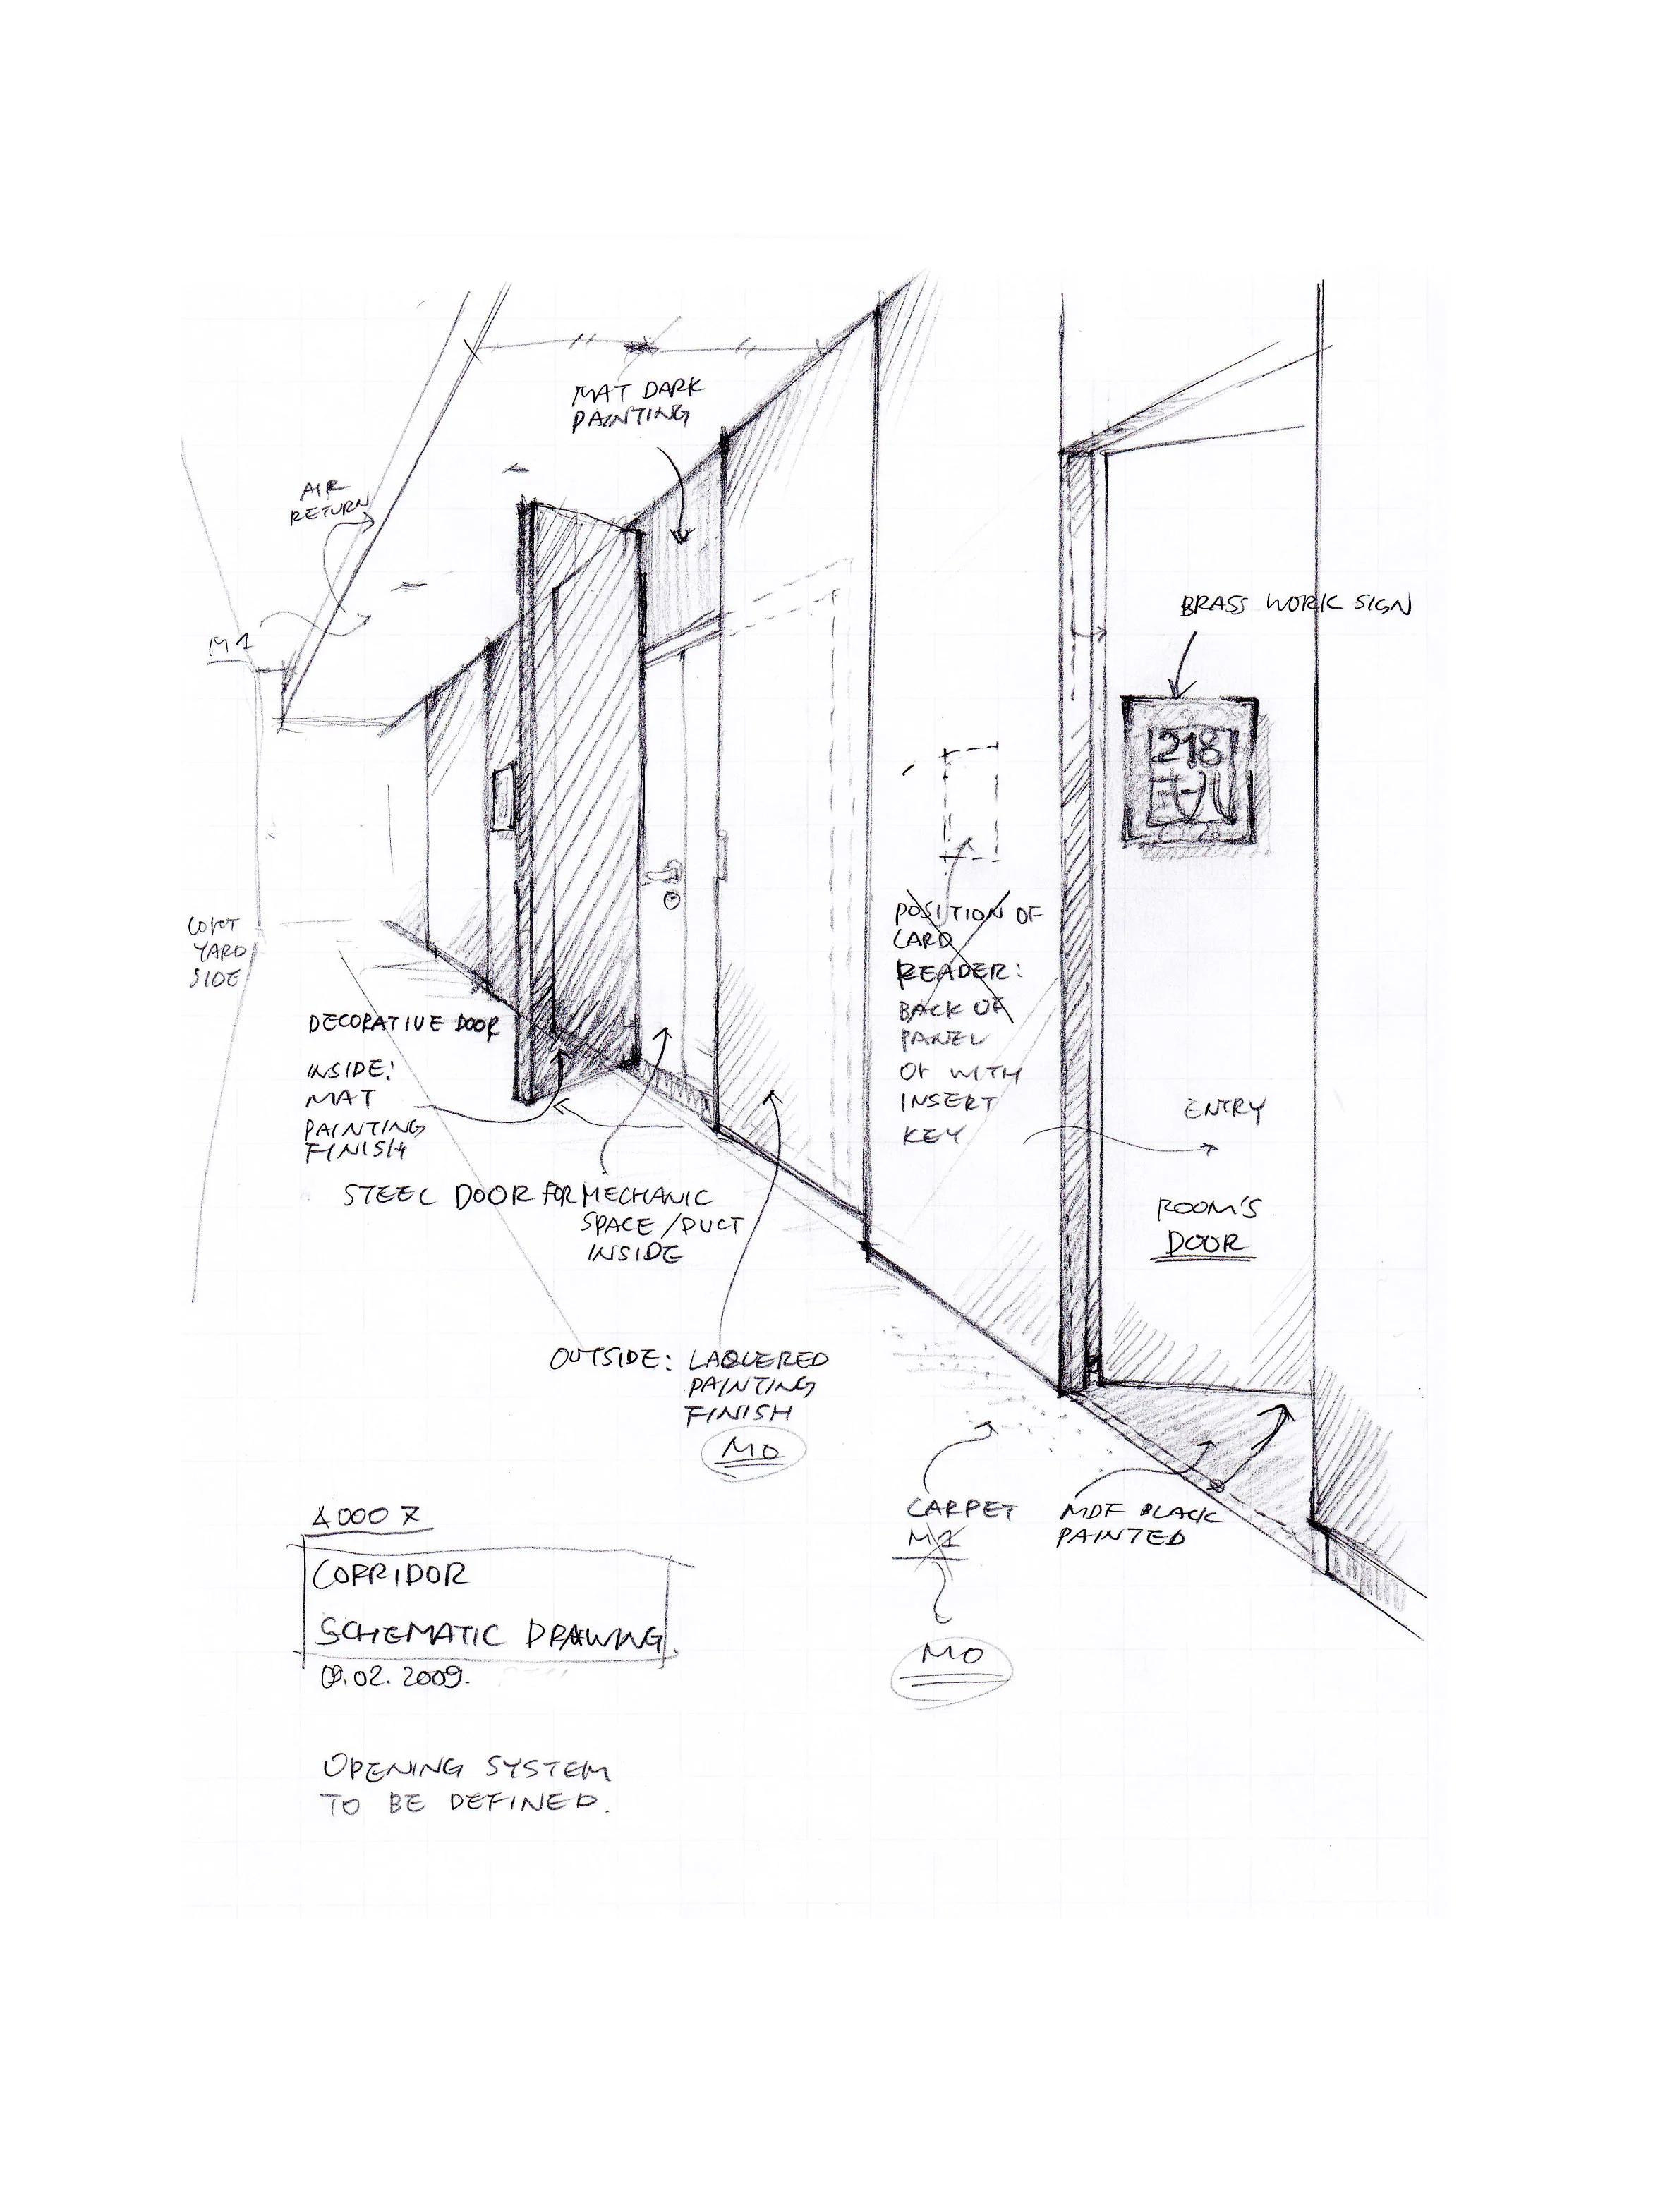 MAT DARK
PAINTING
AIR
RETURN
M1
BRASS WORK SIGN
218
COURT
YARD
SIDE
POSITION OF
CARD
READER:
BACK OF
PANEL
OR WITH
INSERT
KEY
DECORATIVE DOOR
INSIDE:
MAT
PAINTING
FINISH
ENTRY
ROOM'S
DOOR
STEEL DOOR FOR MECHANIC
SPACE / DUCT
INSIDE
OUTSIDE: LAQUERED
PAINTING
FINISH
M0
CARPET
M1
M0
MDF BLACK
PAINTED
CORRIDOR
SCHEMATIC DRAWING.
09.02.2009.
OPENING SYSTEM
TO BE DEFINED.